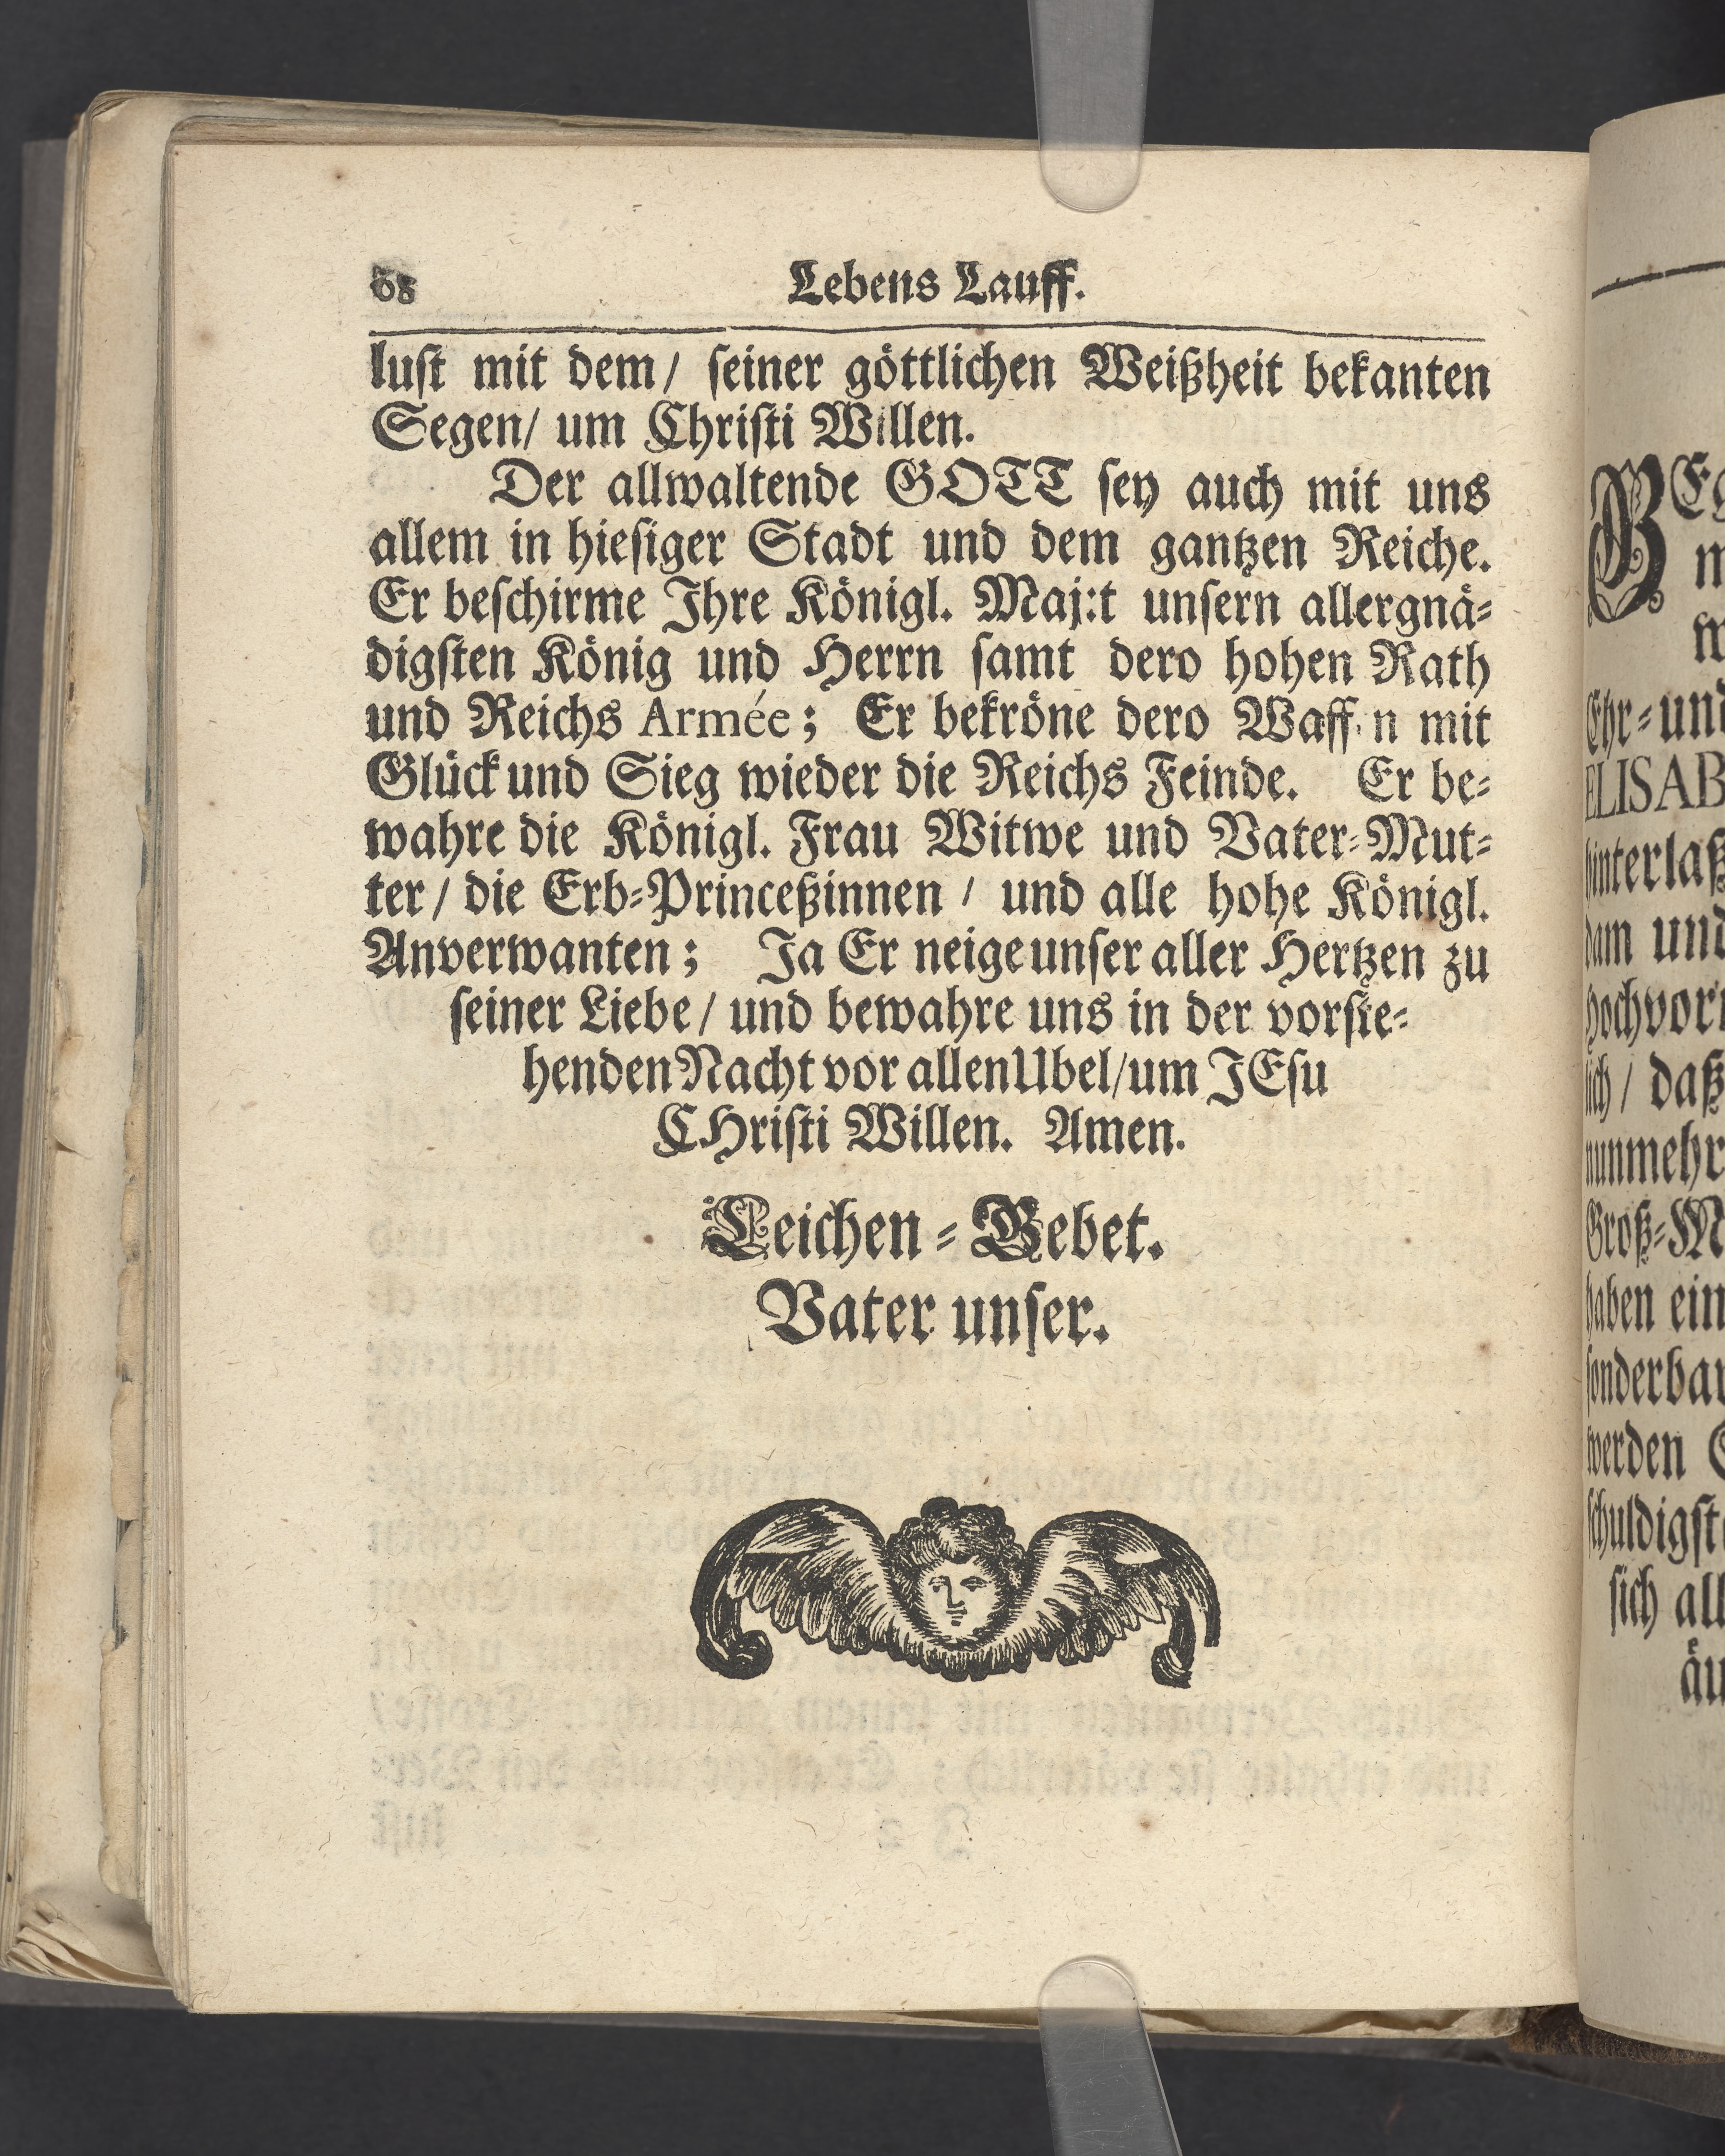 68
Lebens Lauff.
lust mit dem/ seiner göttlichen Weißheit bekanten
Segen/ um Christi Willen.
Der allwaltende GOTT sey auch mit uns
allem in hiesiger Stadt und dem gantzen Reiche.
Er beschirme Ihre Königl. Maj:t unsern allergnä-
digsten König und Herrn samt dero hohen Rath
und Reichs Armée; Er bekröne dero Waff n mit
Glück und Sieg wieder die Reichs Feinde. Er be-
wahre die Königl. Frau Witwe und Vater-Mut-
ter/ die Erb-Princeßinnen/ und alle hohe Königl.
Anverwanten; Ja Er neige unser aller Hertzen zu
seiner Liebe/ und bewahre uns in der vorste-
henden Nacht vor allen Ubel/um JEsu
CHristi Willen. Amen.
Leichen-Gebet.
Vater unser.
Ehr-und
ELISAB
hinterlaß
dam und
hochvor
lich/ daß
nunmehr
Groß-M
haben ein
sonderbar
werden
schuldigst
sich all
äu